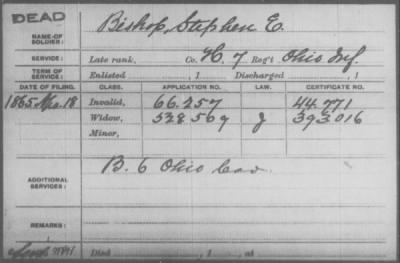 DEAD
NAME OF SOLDIER: Bishop, Stephen E.
SERVICE: Late rank, Co. H. 7 Reg't Ohio Inf.
TERM OF SERVICE: Enlisted , 1 Discharged , 1
DATE OF FILING. CLASS. APPLICATION NO. LAW. CERTIFICATE NO.
1865 Mar. 18 Invalid, 66.257 44.771
Widow, 528.569 J 393.016
Minor,
ADDITIONAL SERVICES: B. 6 Ohio Cav.
REMARKS:
Died , 1 , at